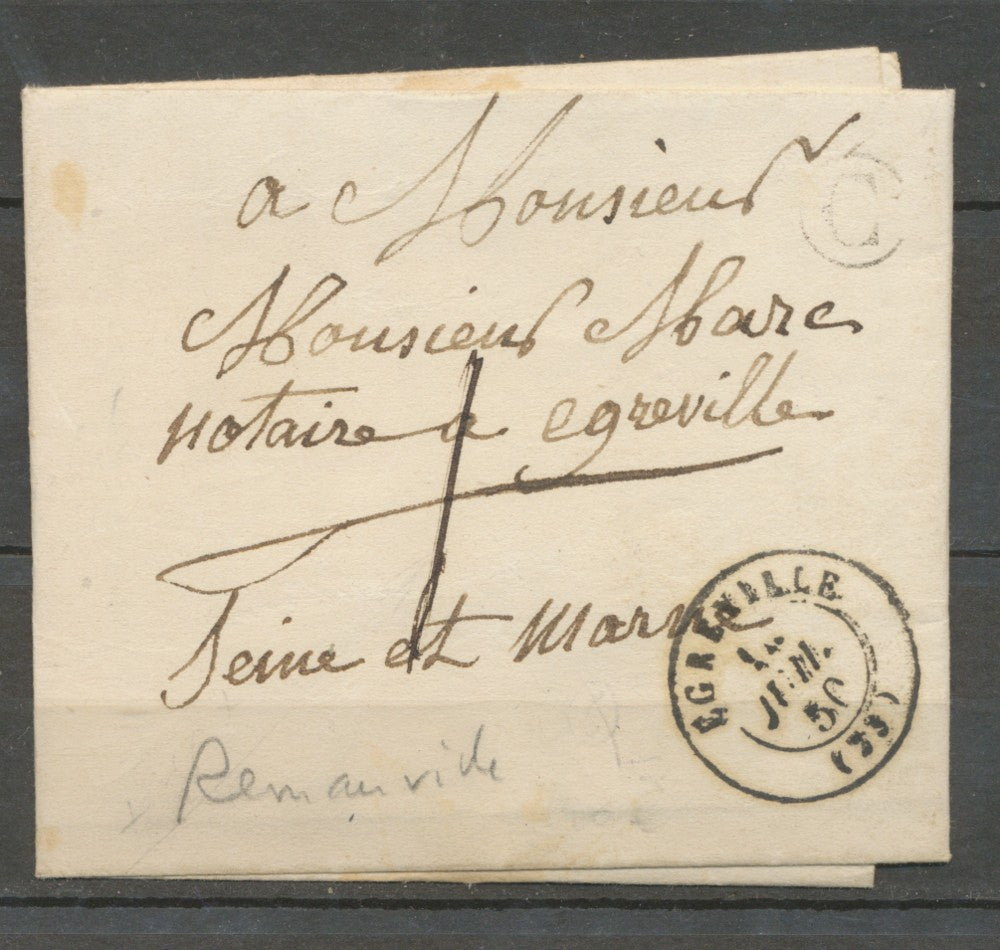 a Monsieur
C
Monsieur Marc
notaire a egreville
1
Seine et Marne
EGREVILLE
JUIL.
50
(73)
Remauville